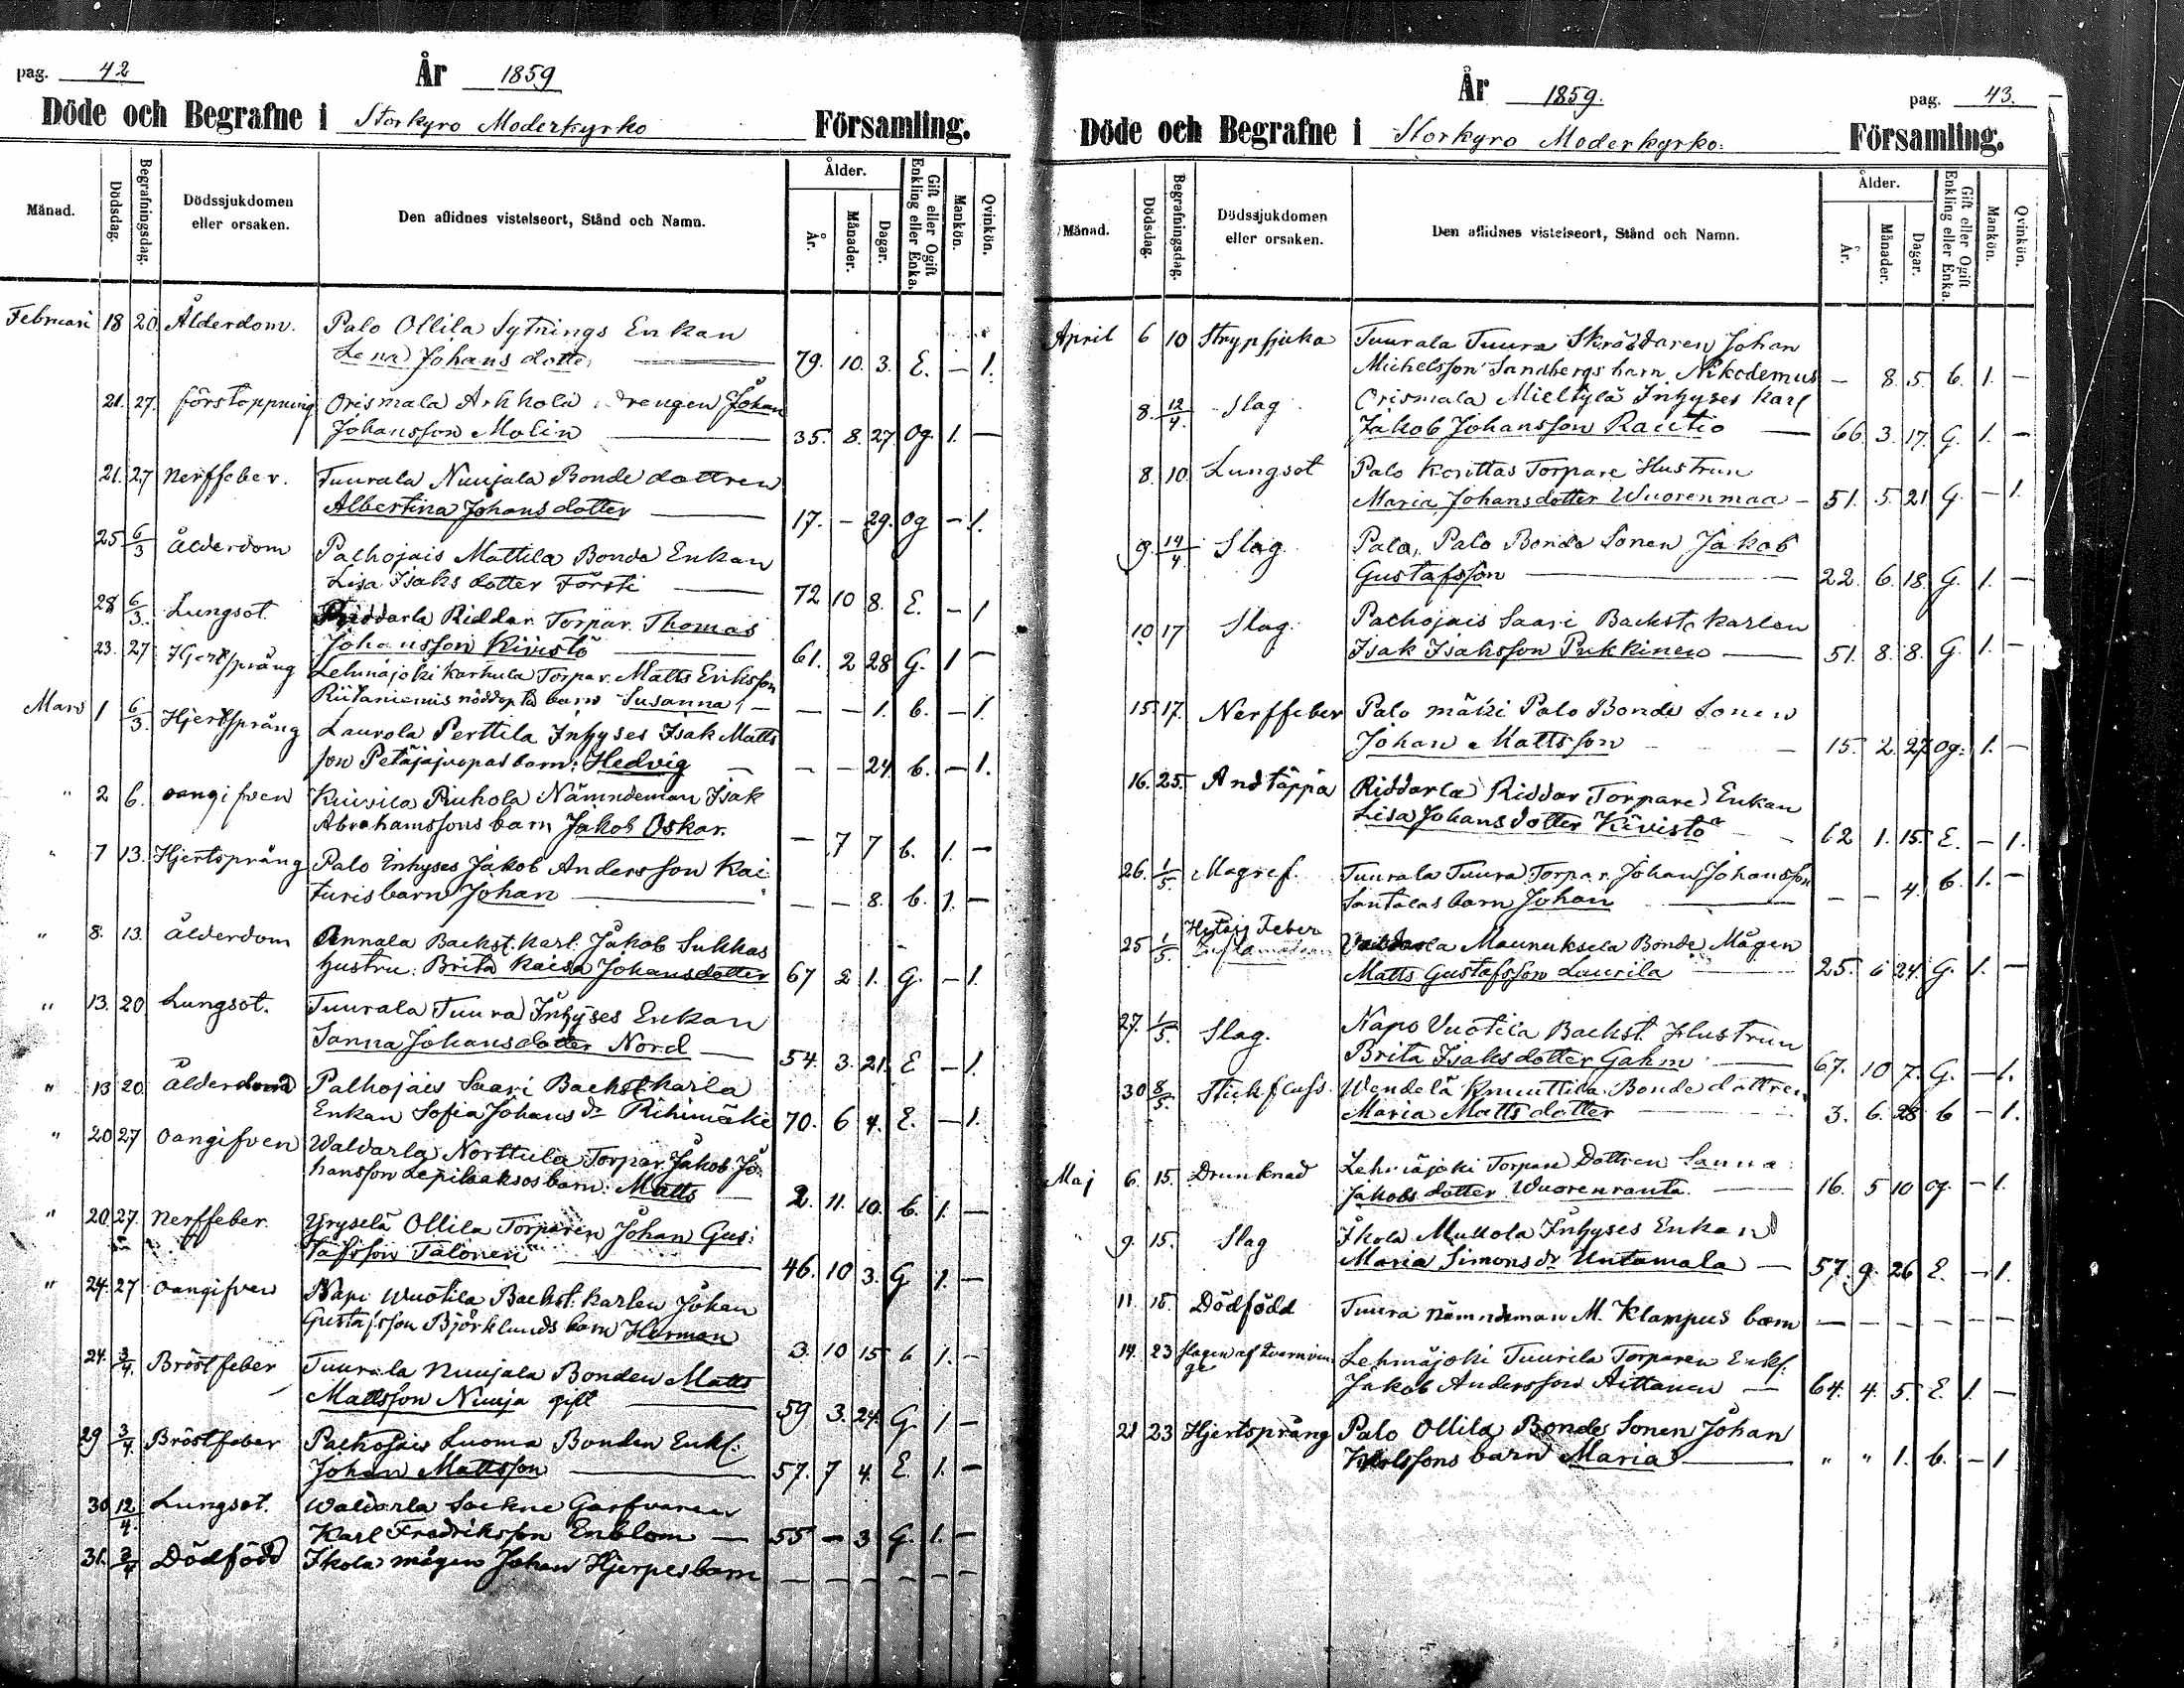 pag. 42
År 1859
Döde och Begrafne i Storkyro Moderkyrko Församling.
Månad. Dödsdag. Begrafningsdag. Dödssjukdomen eller orsaken. Den aflidnes vistelseort, Stånd och Namn. Ålder. År. Månader. Dagar. Gift eller Ogift Enkling eller Enka. Mankön. Qvinkön.
Februari 18 20 Ålderdom. Palo Ollila Sytnings Enkan
Lena Johans dotter 79. 10. 3. E. — 1.
21. 27. förstoppning Orismala Arkkola drengen Johan
Johansson Molin 35. 8. 27 Og. 1. —
21. 27 Nerffeber. Tuurala Nuujala Bonde dottren
Albertina Johansdotter 17. — 29. Og — 1.
25 6/3 Ålderdom Palhojais Mattila Bonde Enkan
Lisa Isaks dotter Försti 72 10 8. E. — 1
28 6/3. Lungsot. Riddarla Riddar Torpar. Thomas
Johansson Kiwistö 61. 2 28 G. 1 —
23. 27 Hjertsprång Lehmäjoki Karhula Torpar. Matts Eriksson
Riitaniemis nöddöpta barn Susanna — — 1. b. — 1.
Mars 1 6/3. Hjertsprång Laurola Perttila Inhyses Isak Matts
son Petäjäjuopas barn: Hedvig — — 24 b. — 1.
" 2 6. oangifven Kuivila Riuhola Nämndeman Isak
Abrahamssons barn Jakob Oskar. — 7 7 b. 1. —
" 7 13. Hjertsprång Palo Inhyses Jakob Andersson Kai
turis barn Johan — — 8. b. 1. —
" 8. 13. ålderdom Annala Backst. karl. Jakob Sukkas
hustru: Brita Kaisa Johansdotter 67 2 1. G. — 1.
" 13. 20 Lungsot. Tuurala Tuura Inhyses Enkan
Sanna Johansdotter Nord 54. 3. 21. E — 1.
" 13 20. Ålderdom Palhojais Saari Backst karla
Enkan Sofia Johans dr Rihimäki 70. 6 4. E. — 1.
" 20 27 oangifven Waldarla Norttula Torpar. Jakob Jo
hansson Lepilaaksos barn: Matts 2. 11. 10. b. 1. —
" 20 27. Nerffeber. Yryselä Ollila Torparen Johan Gus
tafsson Talonen 46. 10 3. G 1. —
" 24. 27 oangifven Napo Wuotila Backst. karlen Johan
Gustafsson Björklunds barn Herman 3. 10 15 b 1. —
24. 3/4. Bröstfeber Tuurala Nuujala Bonden Matts
Mattsson Nuuja gift 59 3. 24. G. 1 —
29 3/4. Bröstfeber Palhojais Luoma Bonden Enkl.
Johan Mattsson 57. 7 4. E. 1. —
30 12/4. Lungsot. Waldarla Sockne Garfvaren
Karl Fredriksson Enblom 55 — 3 G. 1. —
31. 3/4 Dödfödd Ikola mågen Johan Hjerpes barn — — — — — —
År 1859.
pag. 43.
Döde och Begrafne i Storkyro Moderkyrko. Församling.
Månad. Dödsdag. Begrafningsdag. Dödssjukdomen eller orsaken. Den aflidnes vistelseort, Stånd och Namn. Ålder. År. Månader. Dagar. Gift eller Ogift Enkling eller Enka. Mankön. Qvinkön.
April 6 10 Strypsjuka Tuurala Tuura Skräddaren Johan
Michelsson Sandbergs barn Nikodemus — 8. 5. b. 1. —
8. 12/4. Slag. Orismala Mieltylä Inhyses karl
Jakob Johansson Rautio 66. 3. 17. G. 1. —
8. 10. Lungsot Palo Torpare Hustrun
Maria Johansdotter Wuorenmaa 51. 5. 21 G. — 1.
9. 14/4 Slag. Palo, Palo Bonde Sonen Jakob
Gustafsson 22. 6. 18. G. 1. —
10 17 Slag. Palhojais Saari Backst. karlen
Isak Isaksson Pukkinen 51. 8. 8. G. 1. —
15. 17. Nerffeber Palo mäki Palo Bonde Sonen
Johan Mattsson 15. 2. 27. Og. 1. —
16. 25. Andtäppa Riddarla Riddar Torpare Enkan
Lisa Johans dotter Kivistö 62 1. 15. E. — 1.
26. 1/5. Magref. Tuurala Tuura Torpar. Johan Johansson
Santalas barn Johan — — 4. b. 1. —
25 1/5. Feber Maunuksela Bonde Mågen
Matts Gustafsson Laurila 25. 6 24. G. 1. —
27. 1/5. Slag. Napo Vuotila Backst. Hustrun
Brita Isaksdotter Gahm 67. 10 7. G. — 1.
30 8/5. Stickfluss. Wendelä Knuuttila Bonde dottren
Maria Matts dotter 3. 6. 28 b — 1.
Maj 6. 15. Drunknad Lehmäjoki Torpare Dottren Sanna
Jakobs dotter Wuorenranta. 16. 5 10 Og. — 1.
" 9. 15. Slag Ikola Mullola Inhyses Enkan
Maria Simons dr Untamala 57. 9. 26 E. — 1.
11. 15. Dödfödd Tuura Nämndeman M. Klampus barn — — — — — —
14. 23 slagen af
ge Lehmäjoki Tuurila Torparen Enkl.
Jakob Andersson Aittanen 64. 4. 5. E 1. —
21 23 Hjertsprång Palo Ollila Bonde Sonen Johan
Karlssons barn Maria " " 1. b. — 1